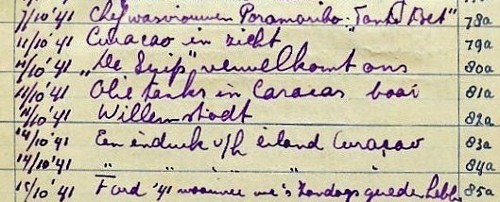 7/10 '41 Chef wasvrouwen Paramaribo: "Tante Bet" 78a
11/10 '41 Curacao in zicht 79a
11/10 '41 "De Snip" verwelkomt ons 80a
11/10 '41 Olie tanks in Caracas baai 81a
11/10 '41 Willemstadt 82a
14/10 '41 Een indruk v/h eiland Curaçao 83a
14/10 '41 " " " " 84a
15/10 '41 Ford '41 waarmee we 's Zondags gereden hebb 85a